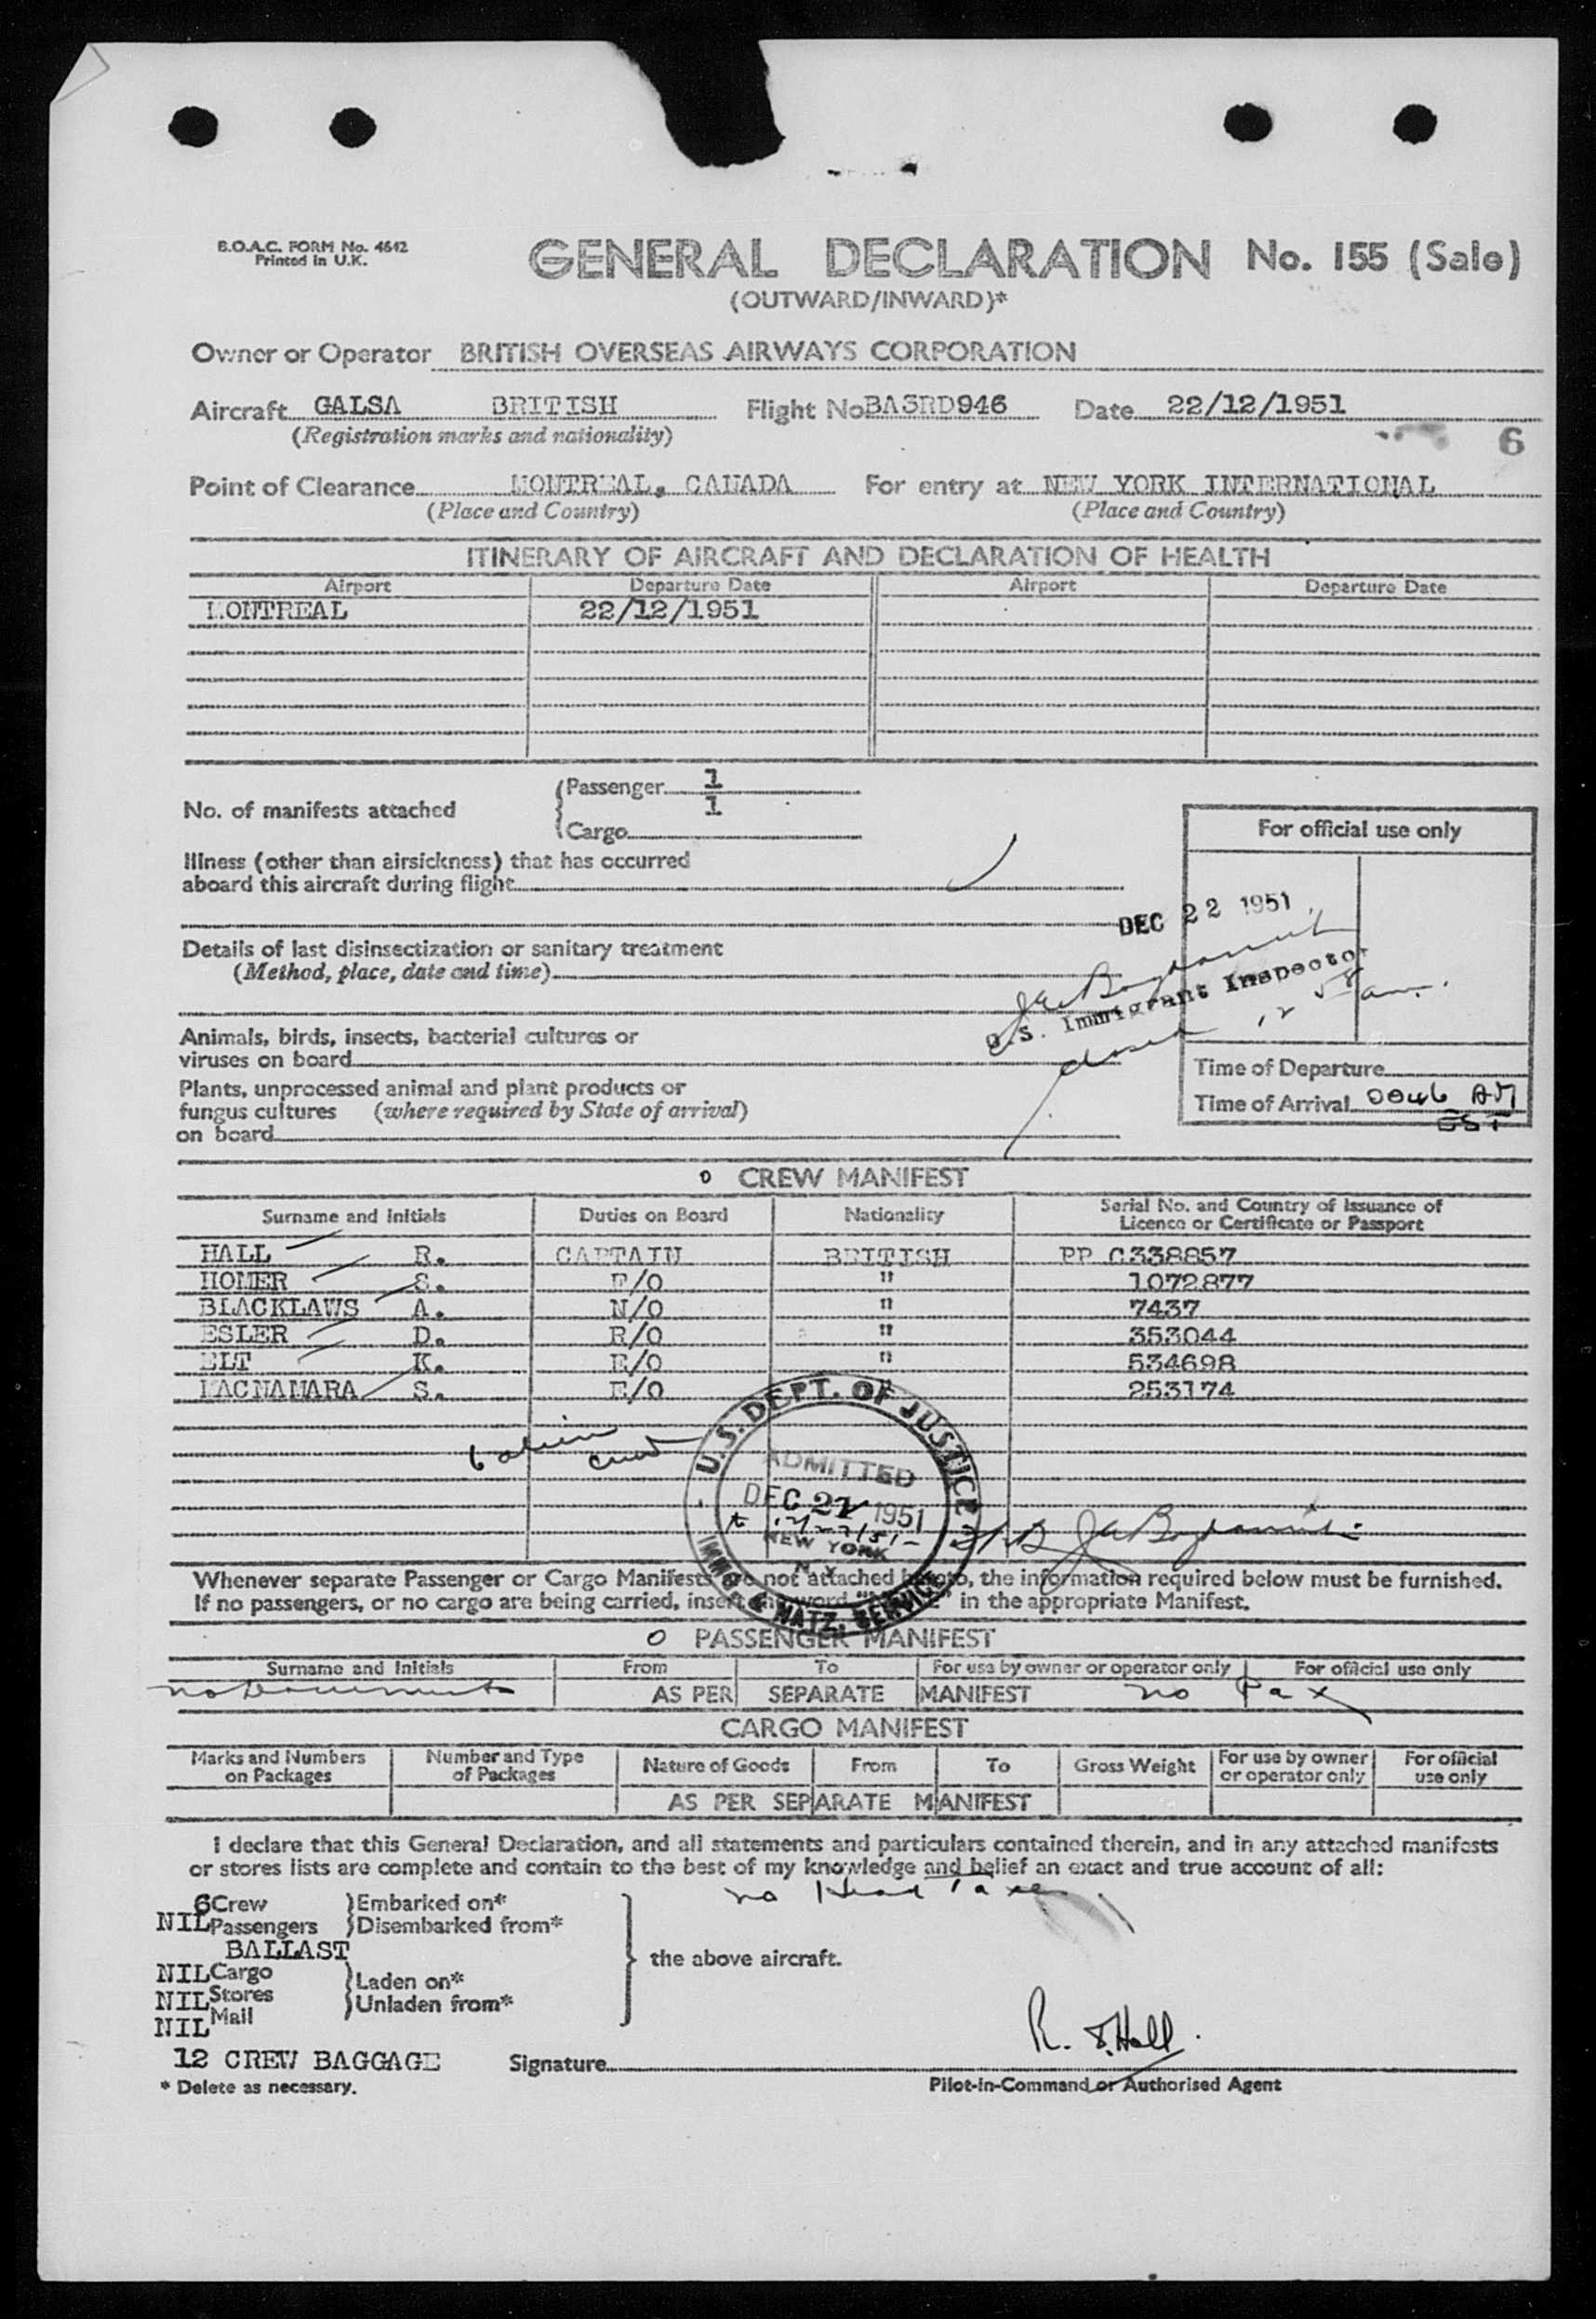 B.O.A.C. FORM No. 4642
Printed in U.K.
GENERAL DECLARATION No. 155 (Sale)
(OUTWARD/INWARD)*
Owner or Operator BRITISH OVERSEAS AIRWAYS CORPORATION
Aircraft GALSA BRITISH Flight No BA3RD946 Date 22/12/1951
(Registration marks and nationality)
6
Point of Clearance MONTREAL, CANADA For entry at NEW YORK INTERNATIONAL
(Place and Country) (Place and Country)
ITINERARY OF AIRCRAFT AND DECLARATION OF HEALTH
Airport Departure Date Airport Departure Date
MONTREAL 22/12/1951
No. of manifests attached
Passenger 1
1
Cargo
For official use only
Illness (other than airsickness) that has occurred
aboard this aircraft during flight
DEC 22 1951
Details of last disinsectization or sanitary treatment
(Method, place, date and time)
U.S. Immigrant Inspector
Animals, birds, insects, bacterial cultures or
viruses on board
Plants, unprocessed animal and plant products or
fungus cultures (where required by State of arrival)
on board
Time of Departure
Time of Arrival 0046 AM
EST
0 CREW MANIFEST
Surname and Initials Duties on Board Nationality Serial No. and Country of Issuance of
Licence or Certificate or Passport
HALL R. CAPTAIN BRITISH PP C338857
HOMER S. F/O " 1072877
BLACKLAWS A. N/O " 7437
ESLER D. R/O " 353044
ELT K. E/O " 534698
MACNAMARA S. E/O " 253174
6 alien
crew
U.S. DEPT. OF JUSTICE
ADMITTED
DEC 22 1951
NEW YORK
N.Y.
IMM. & NATZ. SERVICE
Whenever separate Passenger or Cargo Manifests are not attached hereto, the information required below must be furnished.
If no passengers, or no cargo are being carried, insert the word " " in the appropriate Manifest.
0 PASSENGER MANIFEST
Surname and Initials From To For use by owner or operator only For official use only
no Documents AS PER SEPARATE MANIFEST no Tax
CARGO MANIFEST
Marks and Numbers on Packages Number and Type of Packages Nature of Goods From To Gross Weight For use by owner or operator only For official use only
AS PER SEPARATE MANIFEST
I declare that this General Declaration, and all statements and particulars contained therein, and in any attached manifests
or stores lists are complete and contain to the best of my knowledge and belief an exact and true account of all:
no Head Taxes
6 Crew Embarked on*
NIL Passengers Disembarked from*
BALLAST
the above aircraft.
NIL Cargo Laden on*
NIL Stores Unladen from*
NIL Mail
12 CREW BAGGAGE Signature R. S. Hall.
* Delete as necessary. Pilot-in-Command or Authorised Agent